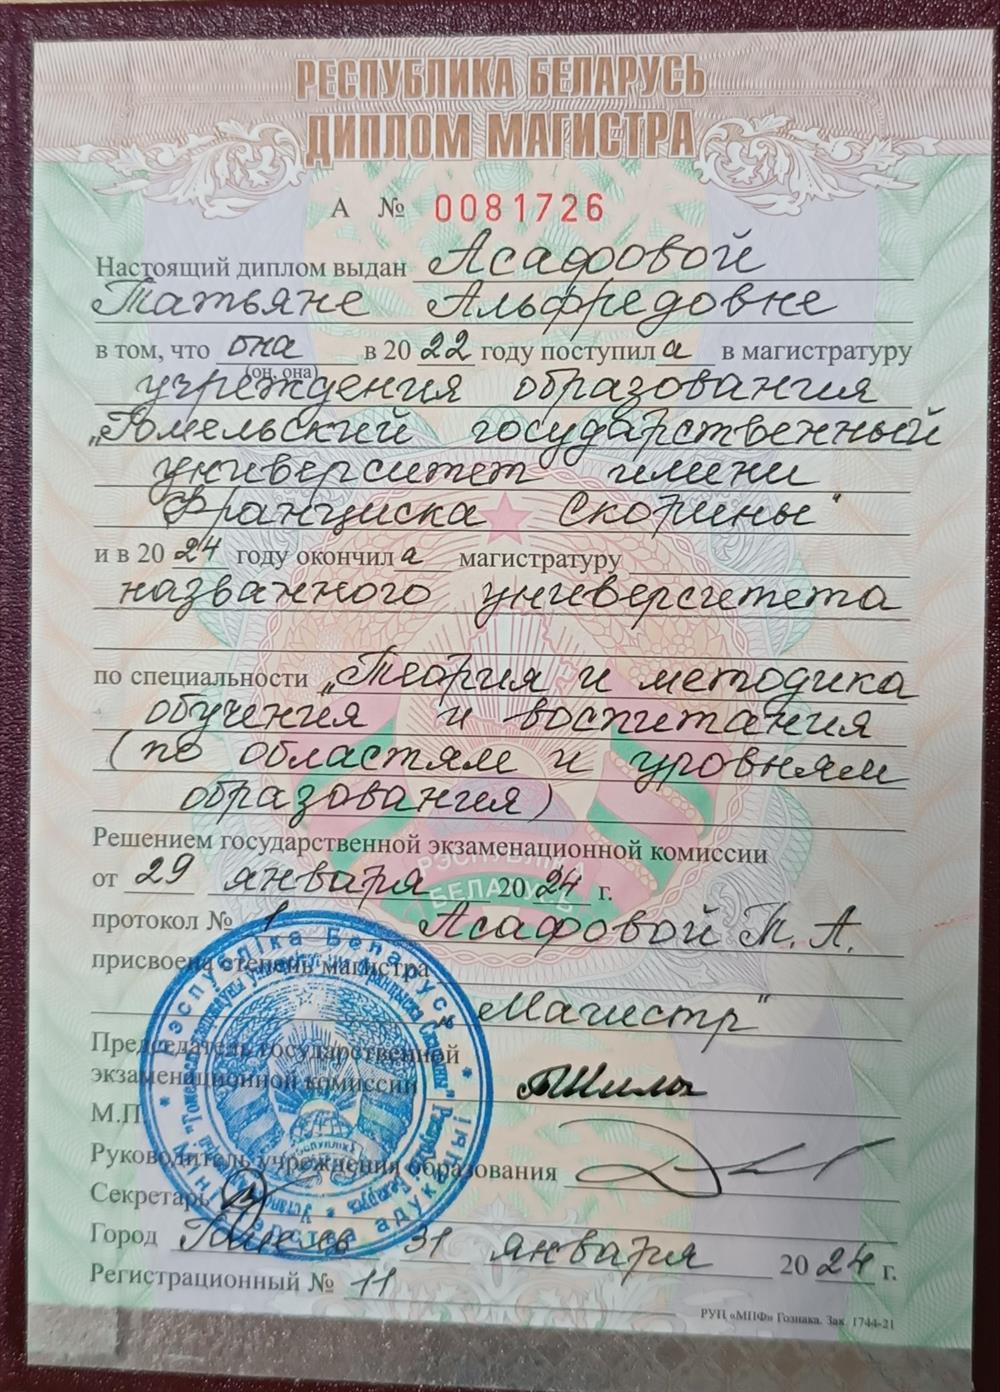 РЕСПУБЛИКА БЕЛАРУСЬ
ДИПЛОМ МАГИСТРА
А № 0081726
Настоящий диплом выдан Асафовой
Татьяне Альфредовне
в том, что она в 2022 году поступила в магистратуру
(он, она)
учреждения образования
„Гомельский государственный
университет имени
Франциска Скорины"
и в 2024 году окончила магистратуру
названного университета
по специальности „Теория и методика
обучения и воспитания
(по областям и уровням
образования)
Решением государственной экзаменационной комиссии
от 29 января 2024 г.
РЭСПУБЛІКА
БЕЛАРУСЬ
протокол № 1 Асафовой Т. А.
присвоена степень магистра
„Магистр"
Председатель государственной
экзаменационной комиссии
М.П.
Руководитель учреждения образования
Секретарь
Город Гомель 31 января 2024 г.
Регистрационный № 11
РУП «МПФ» Гознака. Зак. 1744-21
Рэспубліка Беларусь